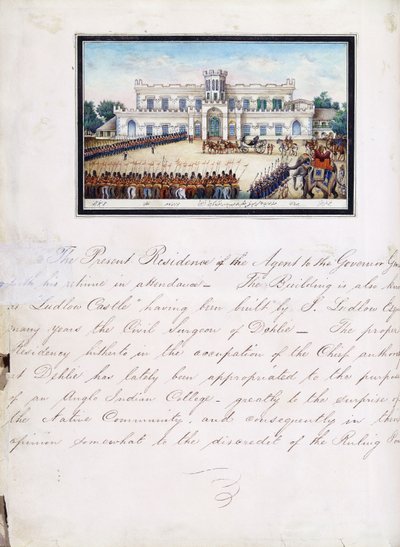 The Present Residence of the Agent to the Governor
with his retinue in attendance — The Building is also
as "Ludlow Castle" having been built by J. Ludlow Esq
many years the Civil Surgeon of Dehlie — The proper
Residency hitherto in the occupation of the Chief
at Dehlie has lately been appropriated to the purpose
of an Anglo Indian College - greatly to the surprise of
the Native Community, and consequently in their
opinion somewhat to the discredit of the Ruling